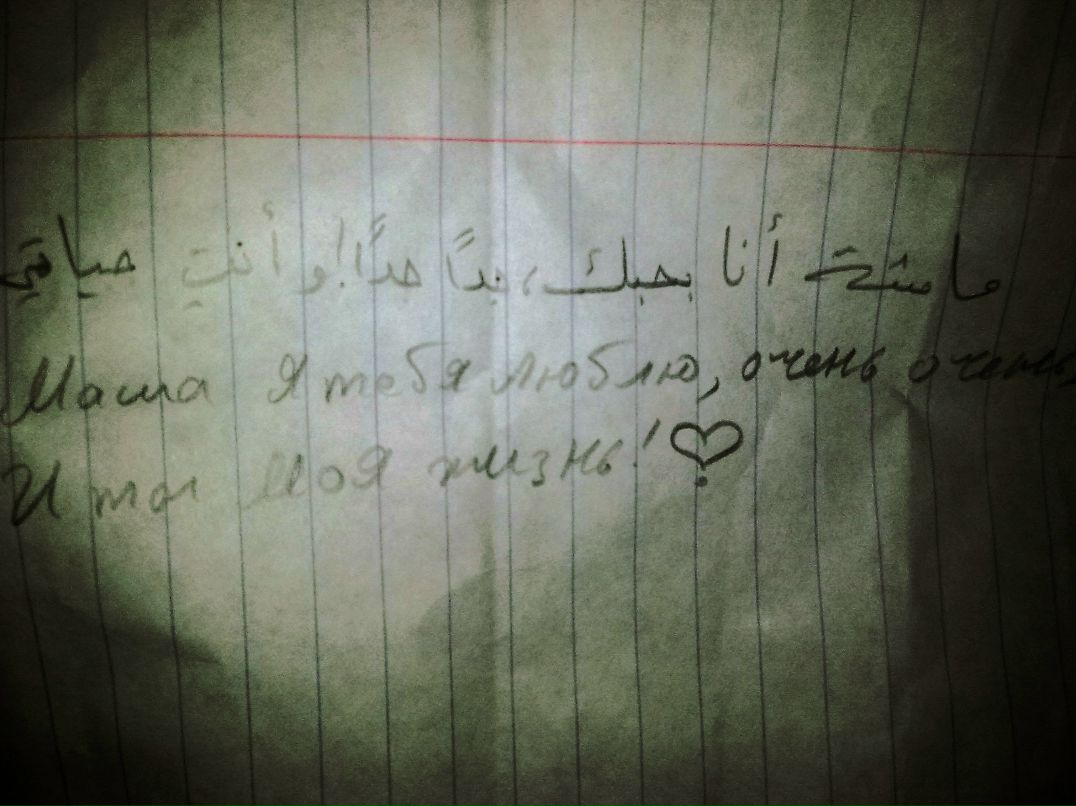 ماشة أنا بحبك، جداً جداً! و أنتِ حياتي
Маша Я тебя люблю, очень очень,
И ты Моя жизнь! ♡